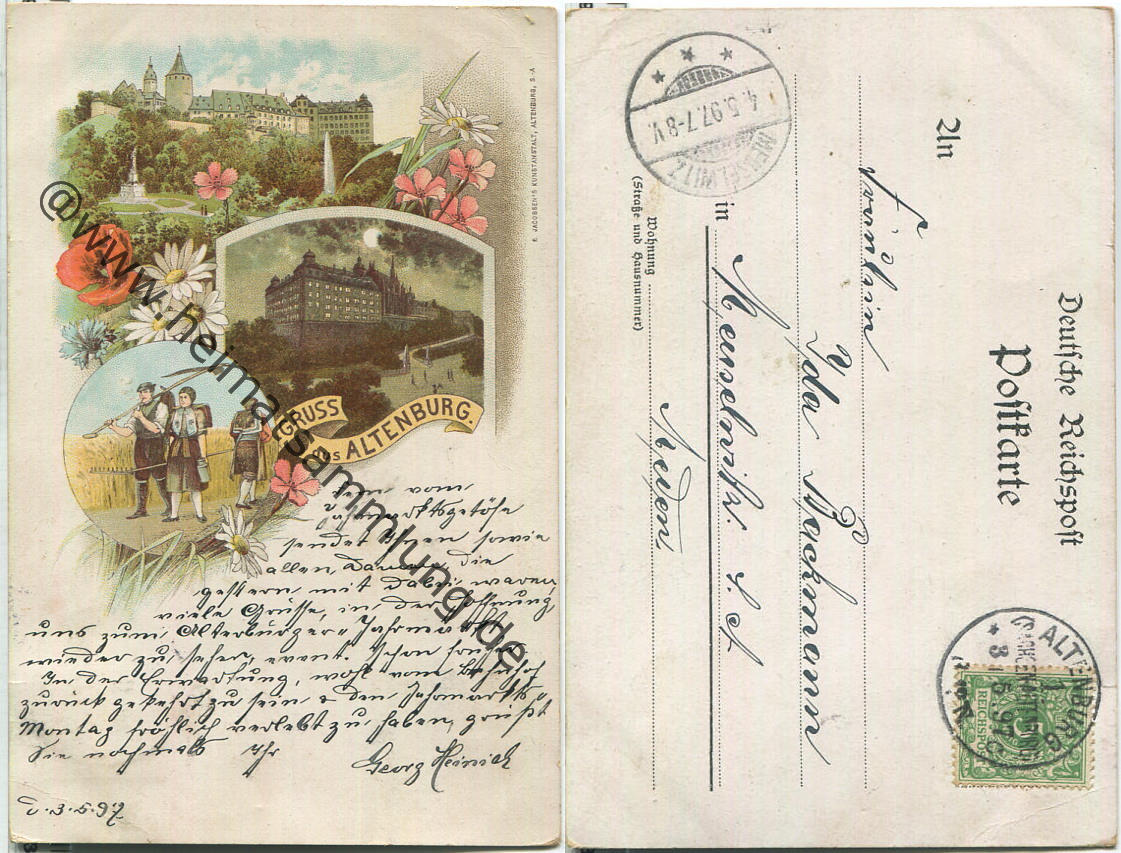 E. JACOBSEN'S KUNSTANSTALT, ALTENBURG, S.-A
GRUSS
aus ALTENBURG.
vom
Jahrmarktsgetöse
sendet Ihnen sowie
allen Damen, die
gestern mit dabei waren,
viele Grüsse, in der Hoffnung,
uns zum Altenburger Jahrmarkt
wieder zu sehen, event. schon früher
In der Erwartung, wohl vom
zurück gekehrt zu sein, & den Jahrmarkts-
Montag fröhlich verlebt zu haben, grüßt
Sie nochmals Ihr
Georg Heinich
3.5.97
@www.heimatsammlung.de
Deutsche Reichspost
Postkarte
An
Fräulein
Ida Bockmann
in Meuselwitz. S. A
Wohnung
(Straße und Hausnummer)
MEUSELWITZ
4.5.97.7-8V.
ALTENBURG
1
REICHSPOST
5